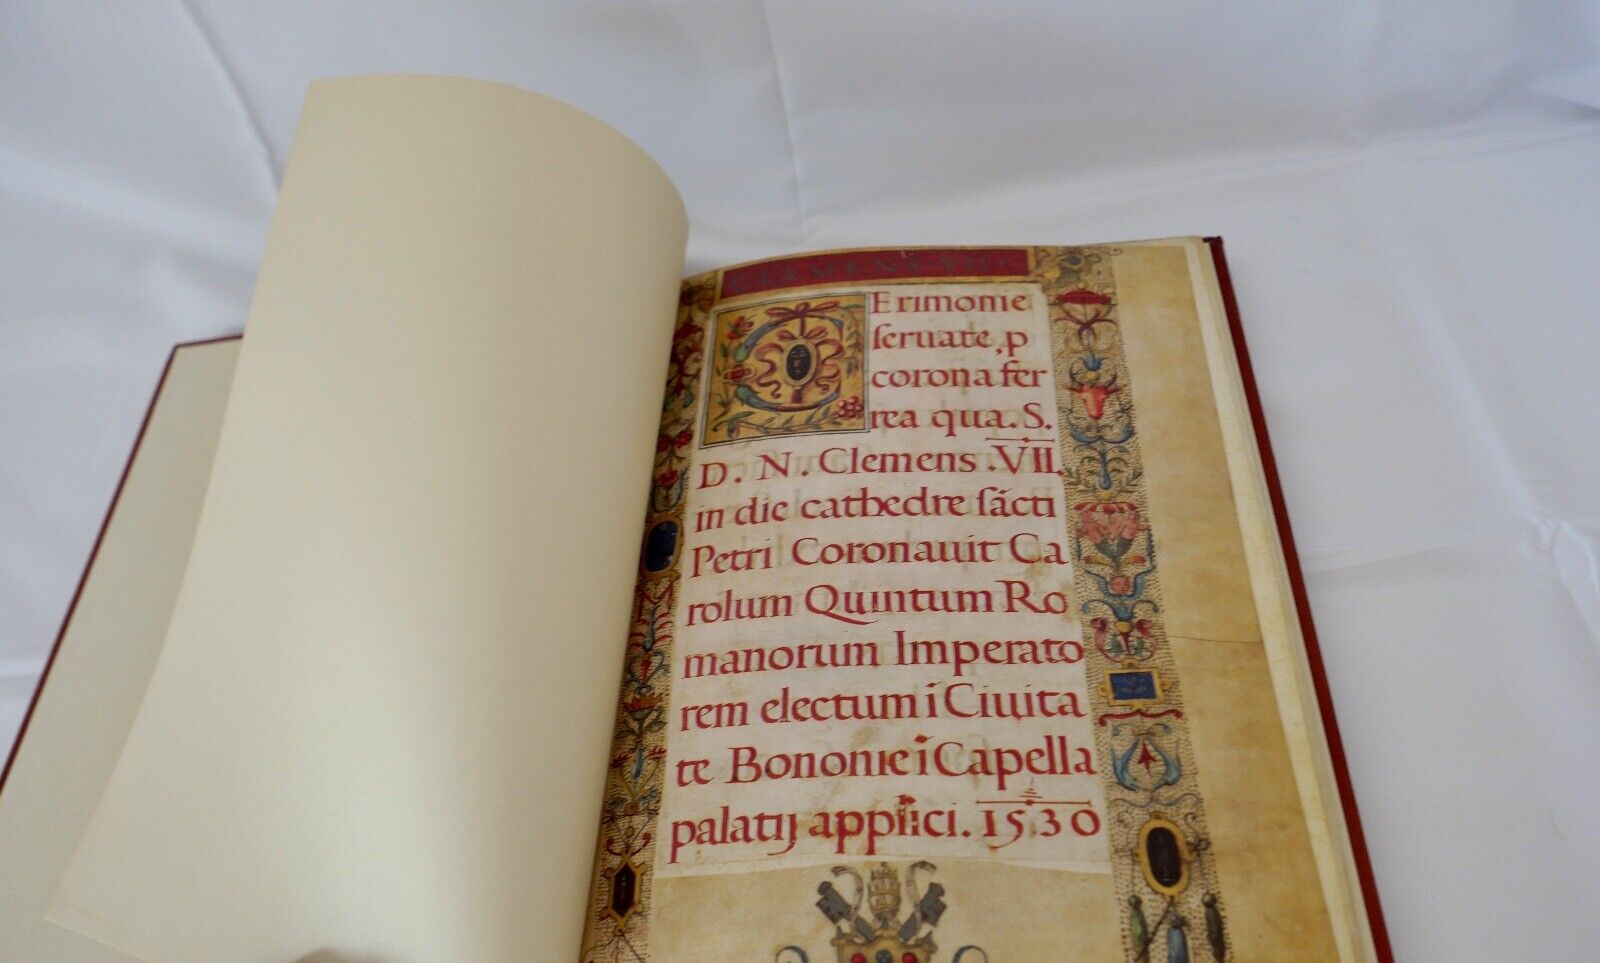 CLEMENS·VII·
CErimonie
ſeruate, p
corona fer
rea qua. S.
D. N. Clemens .VII.
in die cathedre ſãcti
Petri Coronauit Ca
rolum Quintum Ro
manorum Imperato
rem electum ĩ Ciuita
te Bononie ĩ Capella
palatij applici. 1530